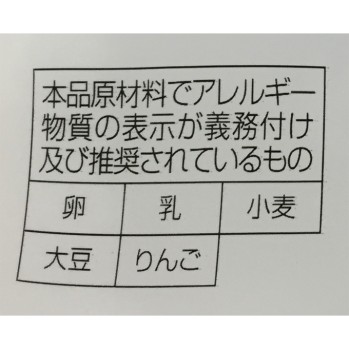 本品原材料でアレルギー
物質の表示が義務付け
及び推奨されているもの
卵 乳 小麦
大豆 りんご